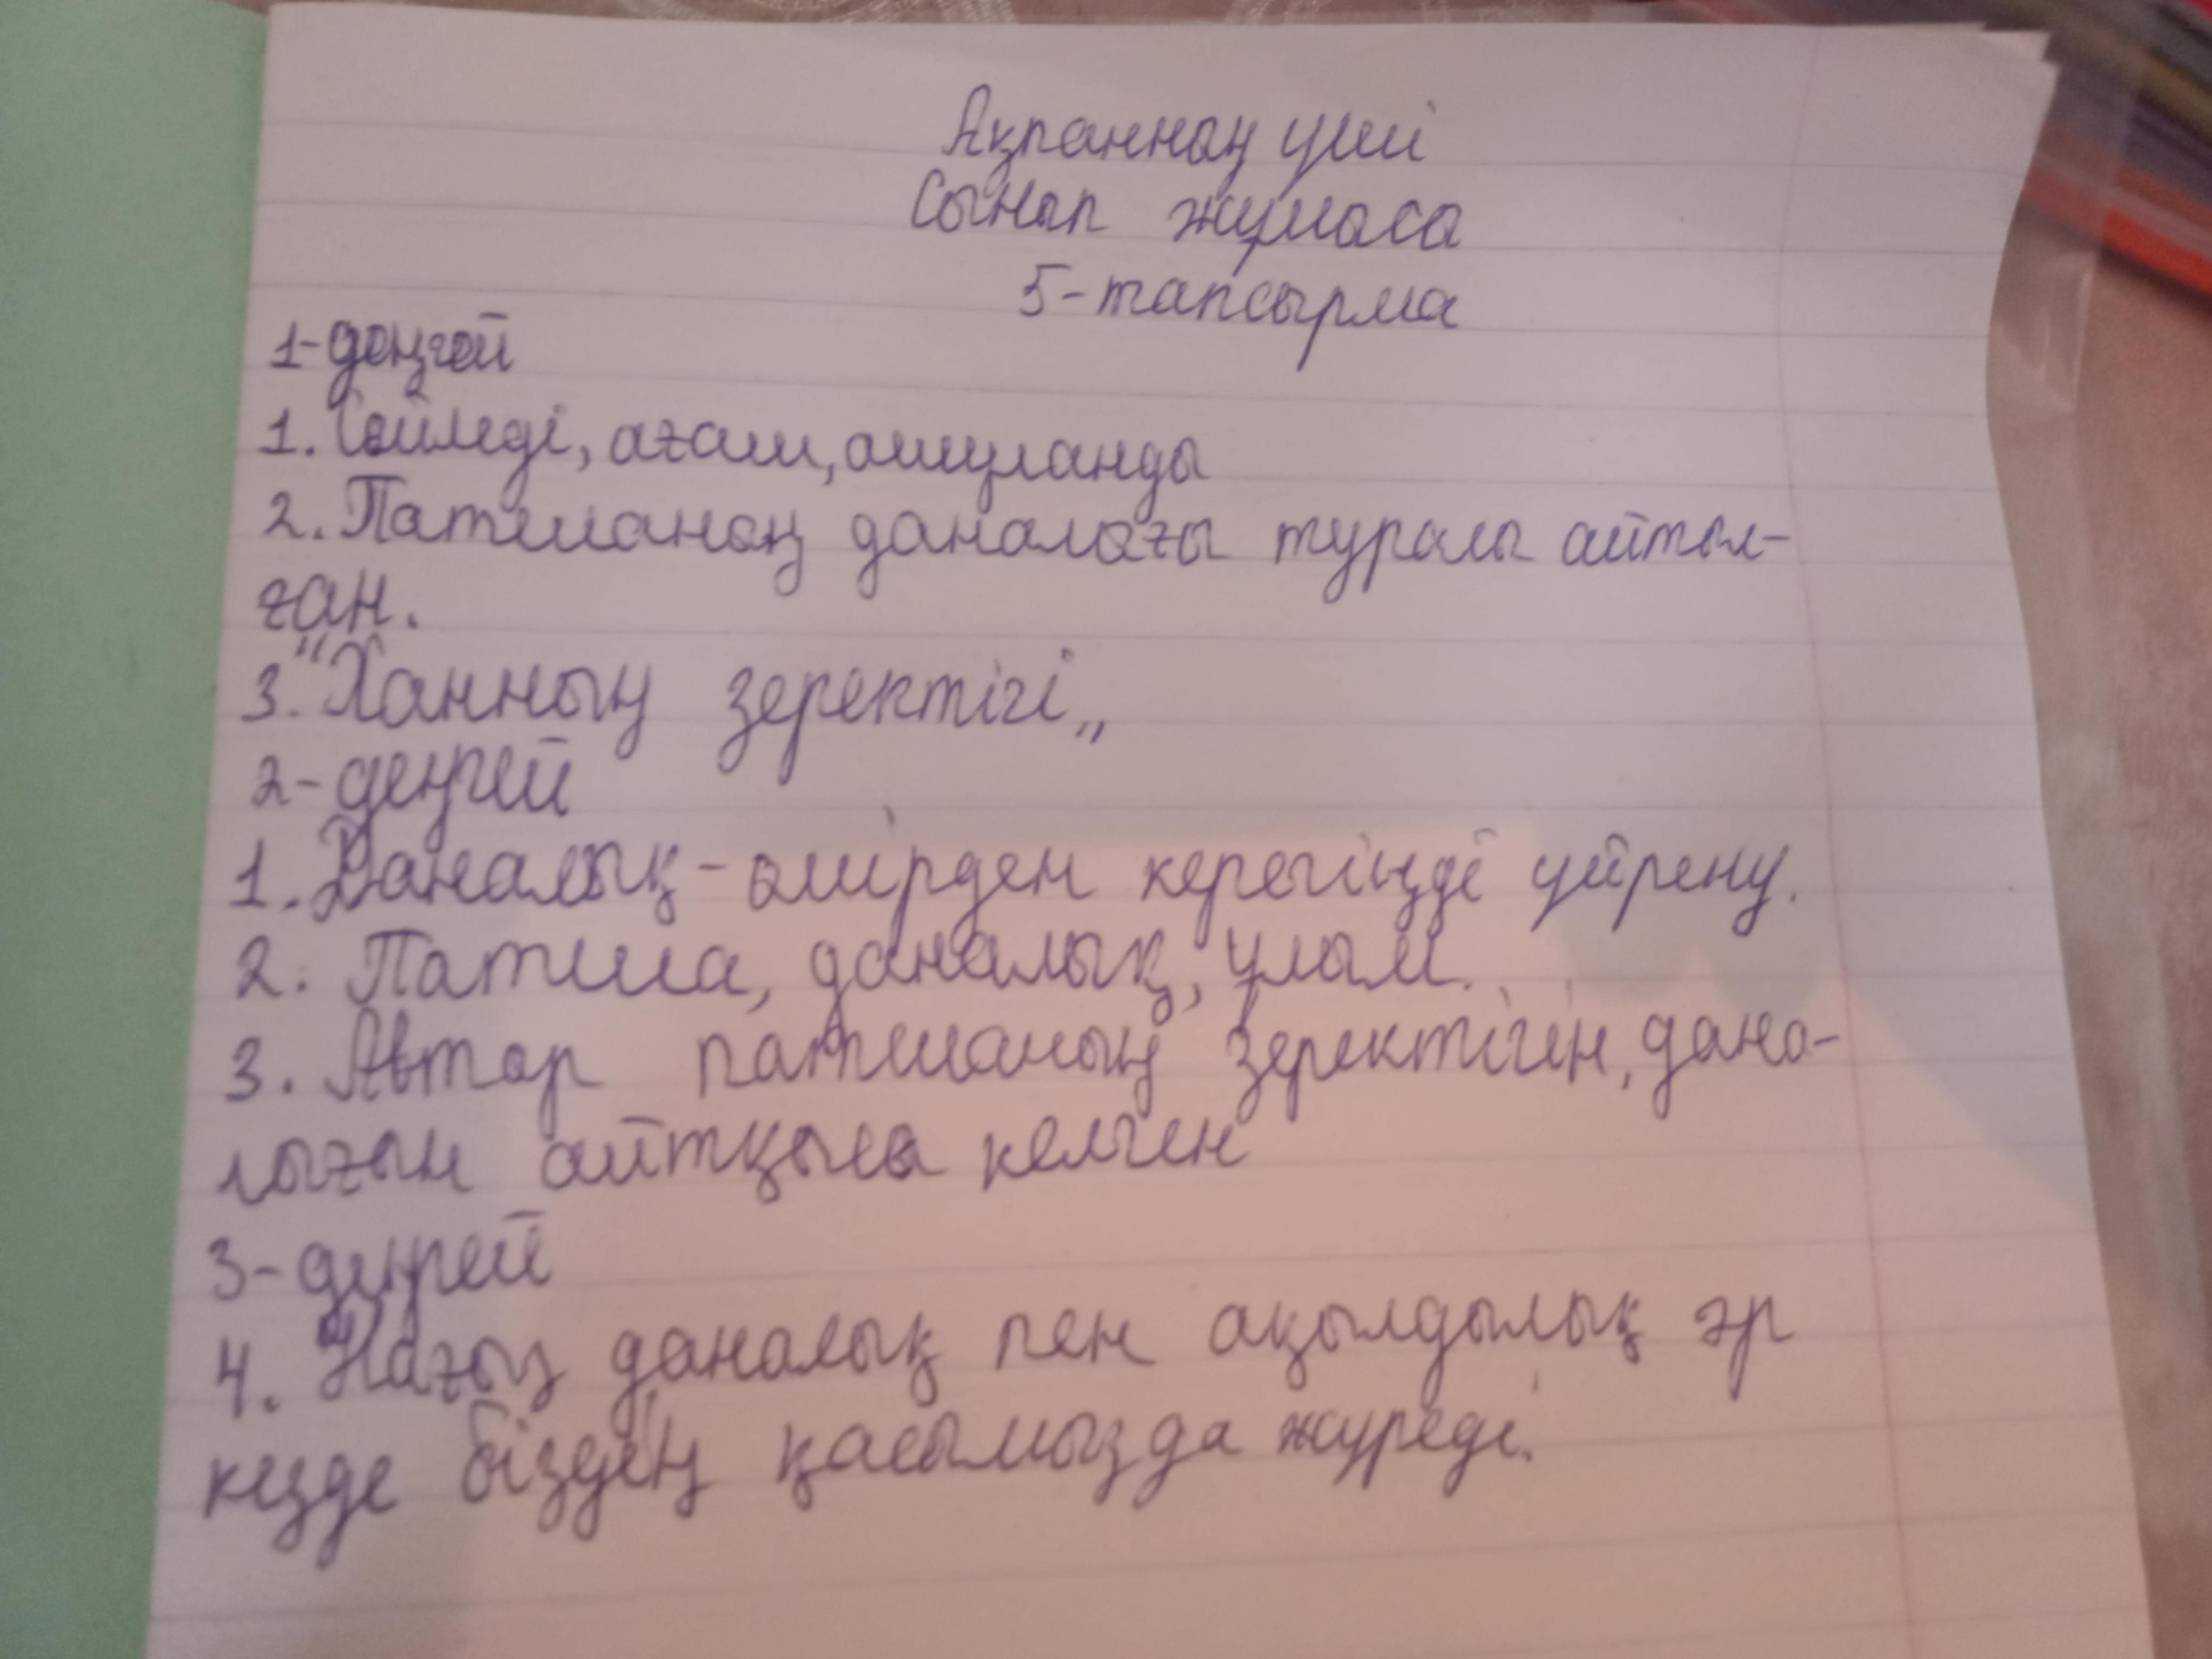 Ақпанның үші
Сынып жұмысы
5-тапсырма
1-деңгей
1. Сөйледі, ағаш, ашуланды
2. Патшаның даналығы туралы айтыл-
ған.
3. "Ханның зеректігі"
2-деңгей
1. Даналық - өмірден керегіңді үйрену.
2. Патша, даналық, ұлым.
3. Автор патшаның зеректігін, дана-
лығын айтқысы келген
3-деңгей
4. Нағыз даналық пен ақылдылық әр
кезде біздің қасымызда жүреді.